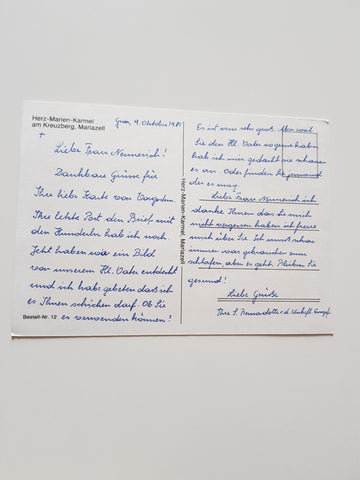 Herz-Marien-Karmel
am Kreuzberg, Mariazell
Graz, 9. Oktober 1981
+
Liebe Frau Nemmerich!
Dankbare Grüsse für
Ihre liebe Karte von
Ihre letzte Post den Brief mit
den Hunderter hab ich noch.
Jetzt haben wir ein Bild
von unserem Hl. Vater entdeckt
und ich habe gebeten dass ich
es Ihnen schicken darf. Ob Sie
es verwenden können?
Bestell-Nr. 12
Herz-Marien-Karmel, Mariazell
Es ist nur sehr gross. Aber weil
Sie den Hl. Vater so gerne haben
hab ich mir gedacht sie schauen
es an. Oder finden jemand
der es mag.
Liebe Frau Nemmerich ich
danke Ihnen dass Sie mich
nicht vergessen haben ich freue
mich über Sie. Ich muss schon
immer was gebrauchen zum
schlafen aber es geht. Bleiben Sie
gesund!
Liebe Grüsse
Ihre S. Bernadette v. d. Unbefl. Empf.